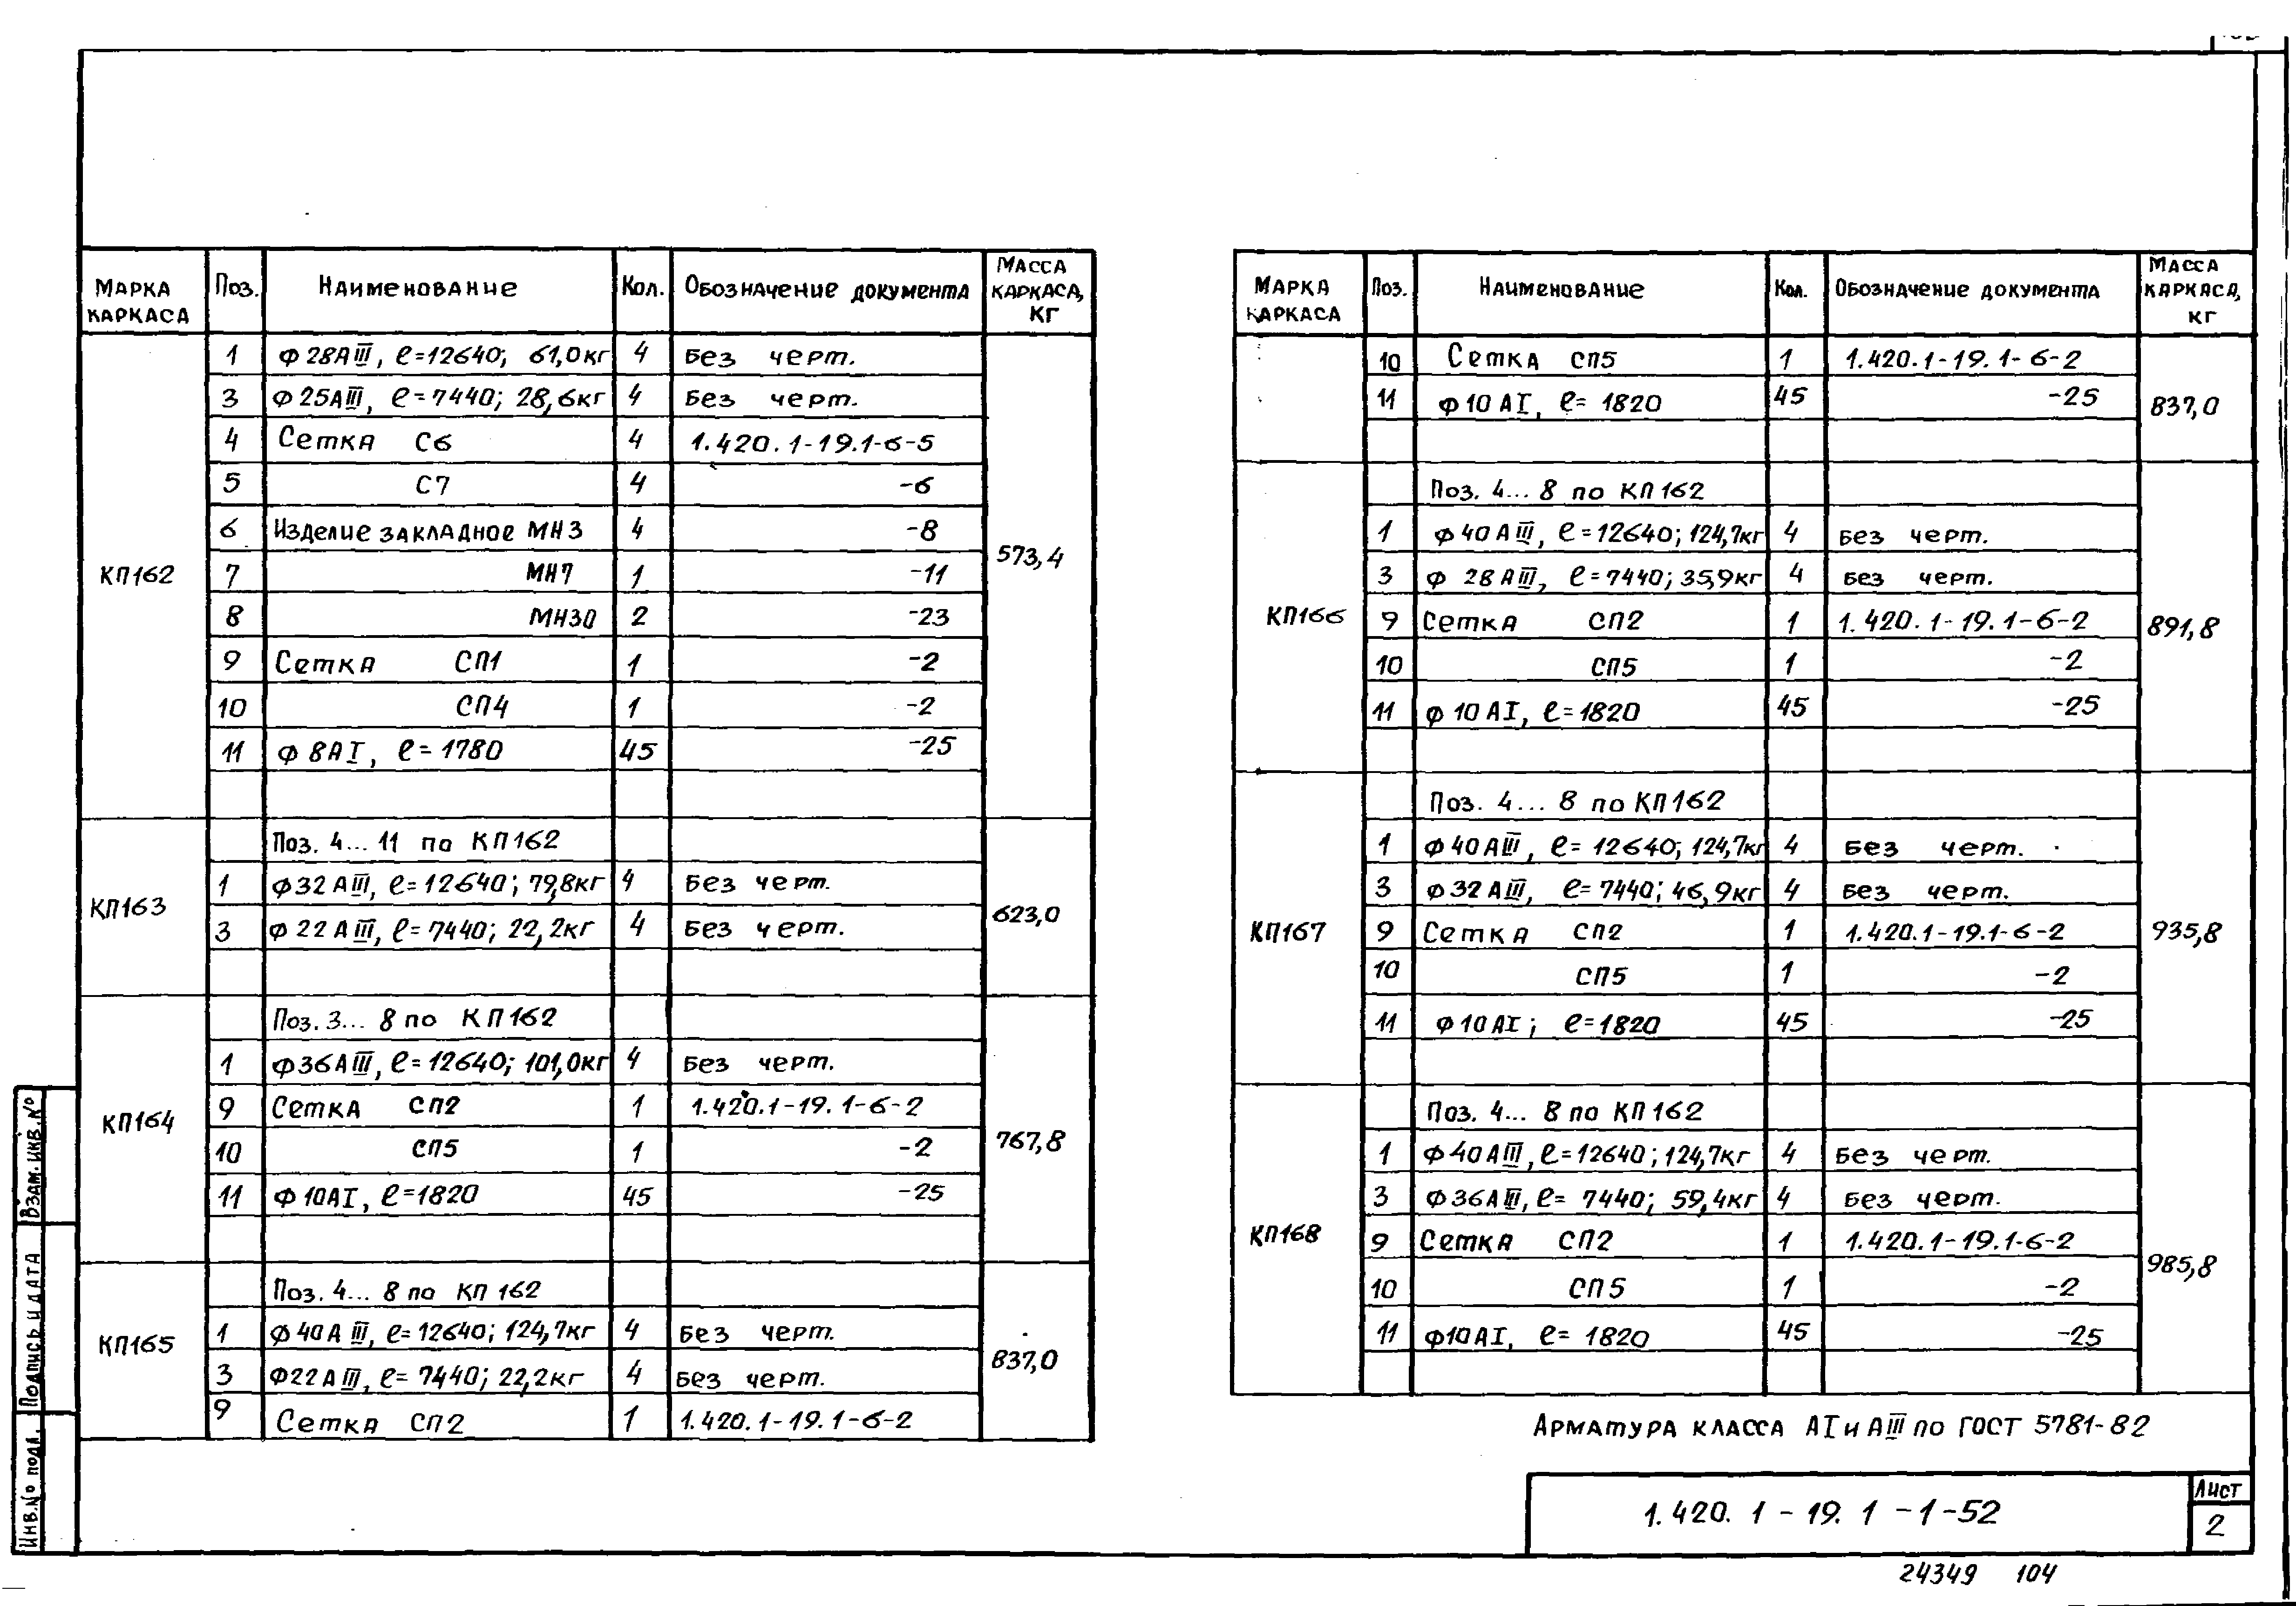 Марка каркаса | Поз. | Наименование | Кол. | Обозначение документа | Масса каркаса, кг
КП162 | 1 | Ф28АIII, ℓ=12640; 61,0кг | 4 | Без черт. | 573,4
3 | Ф25АIII, ℓ=7440; 28,6кг | 4 | Без черт.
4 | Сетка С6 | 4 | 1.420.1-19.1-6-5
5 | С7 | 4 | -6
6 | Изделие закладное МН3 | 4 | -8
7 | МН7 | 1 | -11
8 | МН30 | 2 | -23
9 | Сетка СП1 | 1 | -2
10 | СП4 | 1 | -2
11 | Ф8АI, ℓ=1780 | 45 | -25
КП163 | Поз. 4... 11 по КП162 | 623,0
1 | Ф32АIII, ℓ=12640; 79,8кг | 4 | Без черт.
3 | Ф22АIII, ℓ=7440; 22,2кг | 4 | Без черт.
КП164 | Поз. 3... 8 по КП162 | 767,8
1 | Ф36АIII, ℓ=12640; 101,0кг | 4 | Без черт.
9 | Сетка СП2 | 1 | 1.420.1-19.1-6-2
10 | СП5 | 1 | -2
11 | Ф10АI, ℓ=1820 | 45 | -25
КП165 | Поз. 4... 8 по КП162 | 837,0
1 | Ф40АIII, ℓ=12640; 124,7кг | 4 | Без черт.
3 | Ф22АIII, ℓ=7440; 22,2кг | 4 | Без черт.
9 | Сетка СП2 | 1 | 1.420.1-19.1-6-2
Марка каркаса | Поз. | Наименование | Кол. | Обозначение документа | Масса каркаса, кг
10 | Сетка СП5 | 1 | 1.420.1-19.1-6-2 | 837,0
11 | Ф10АI, ℓ=1820 | 45 | -25
КП166 | Поз. 4... 8 по КП162 | 891,8
1 | Ф40АIII, ℓ=12640; 124,7кг | 4 | Без черт.
3 | Ф28АIII, ℓ=7440; 35,9кг | 4 | Без черт.
9 | Сетка СП2 | 1 | 1.420.1-19.1-6-2
10 | СП5 | 1 | -2
11 | Ф10АI, ℓ=1820 | 45 | -25
КП167 | Поз. 4... 8 по КП162 | 935,8
1 | Ф40АIII, ℓ=12640; 124,7кг | 4 | Без черт.
3 | Ф32АIII, ℓ=7440; 46,9кг | 4 | Без черт.
9 | Сетка СП2 | 1 | 1.420.1-19.1-6-2
10 | СП5 | 1 | -2
11 | Ф10АI; ℓ=1820 | 45 | -25
КП168 | Поз. 4... 8 по КП162 | 985,8
1 | Ф40АIII, ℓ=12640; 124,7кг | 4 | Без черт.
3 | Ф36АIII, ℓ=7440; 59,4кг | 4 | Без черт.
9 | Сетка СП2 | 1 | 1.420.1-19.1-6-2
10 | СП5 | 1 | -2
11 | Ф10АI, ℓ=1820 | 45 | -25
Арматура класса АI и АIII по ГОСТ 5781-82
1.420.1-19.1-1-52
Лист
2
24349 104
Взам. инв. №
Подпись и дата
Инв. № подл.